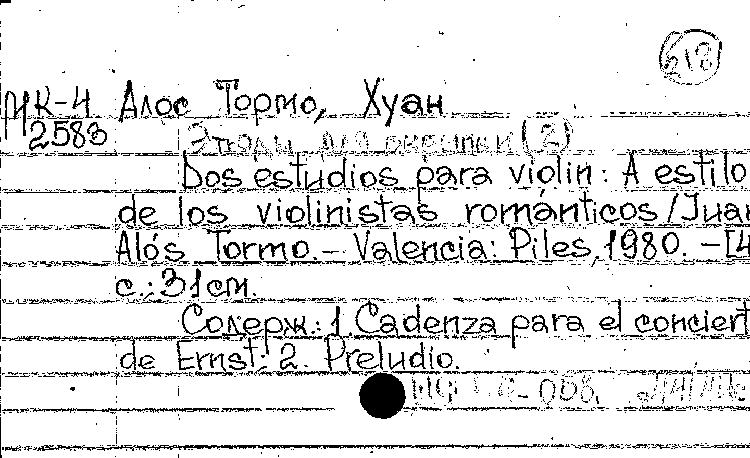 518
МК-4 Алос Тормо, Хуан
2583 Этюды для скрипки (2)
Dos estudios para violin: A estilo
de los violinistas románticos/Juan
Alós Tormo. – Valencia: Piles, 1980. – [4
с.: 31 cm.
Содерж.: 1. Cadenza para el conciert
de Ernst. 2. Preludio.